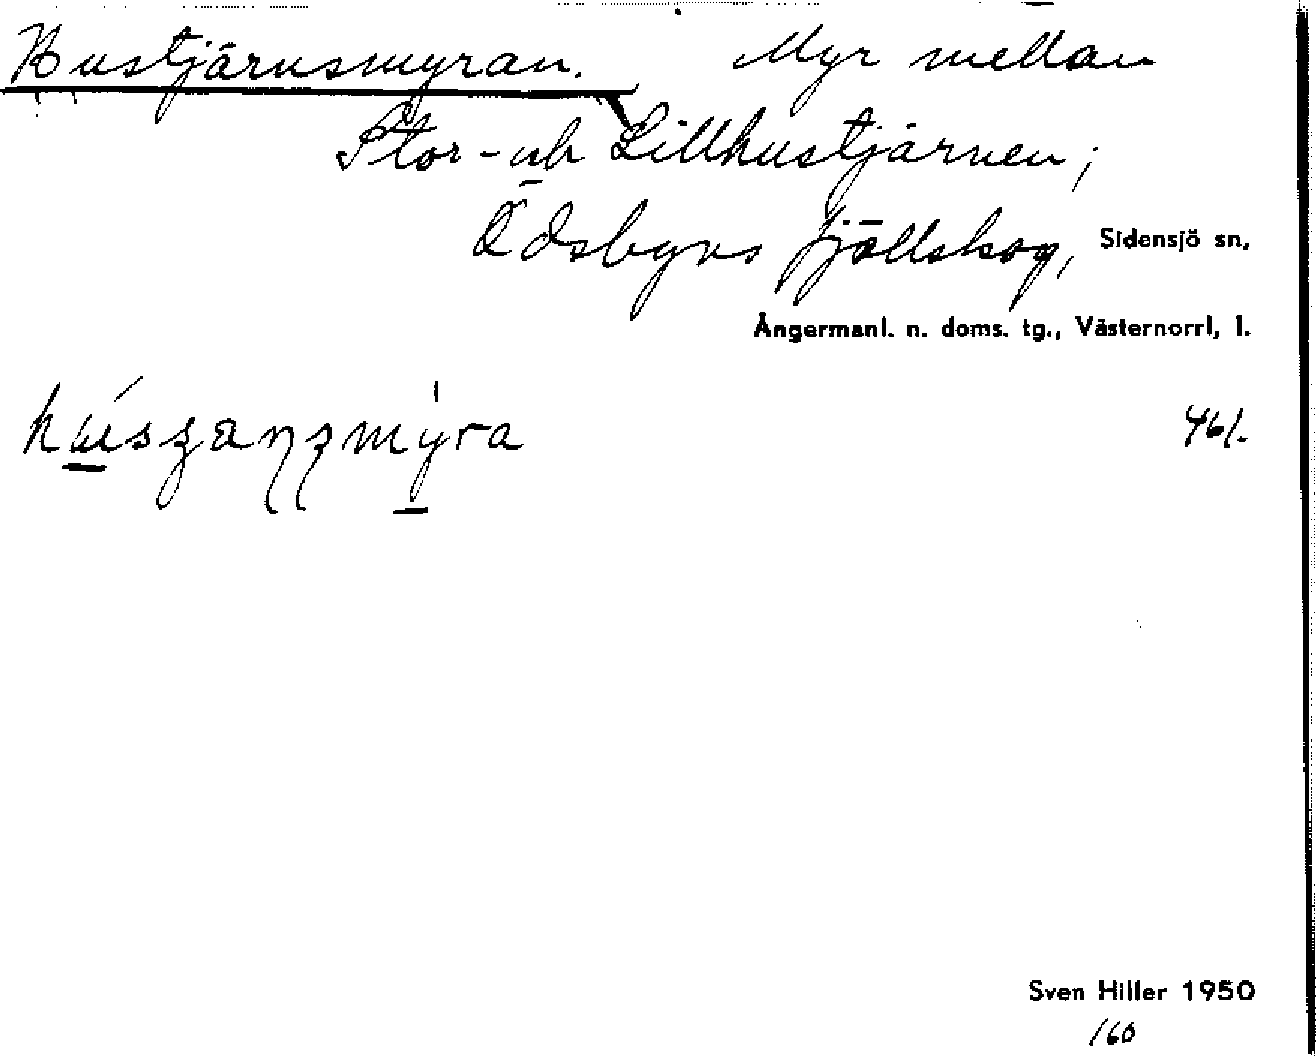 Hustjärnsmyran. Myr mellan
Stor- och Lillhustjärnen;
Ödsbyns fjällskog, Sidensjö sn,
Ångermanl. n. doms. tg., Västernorrl. l.
461.
Sven Hiller 1950
160